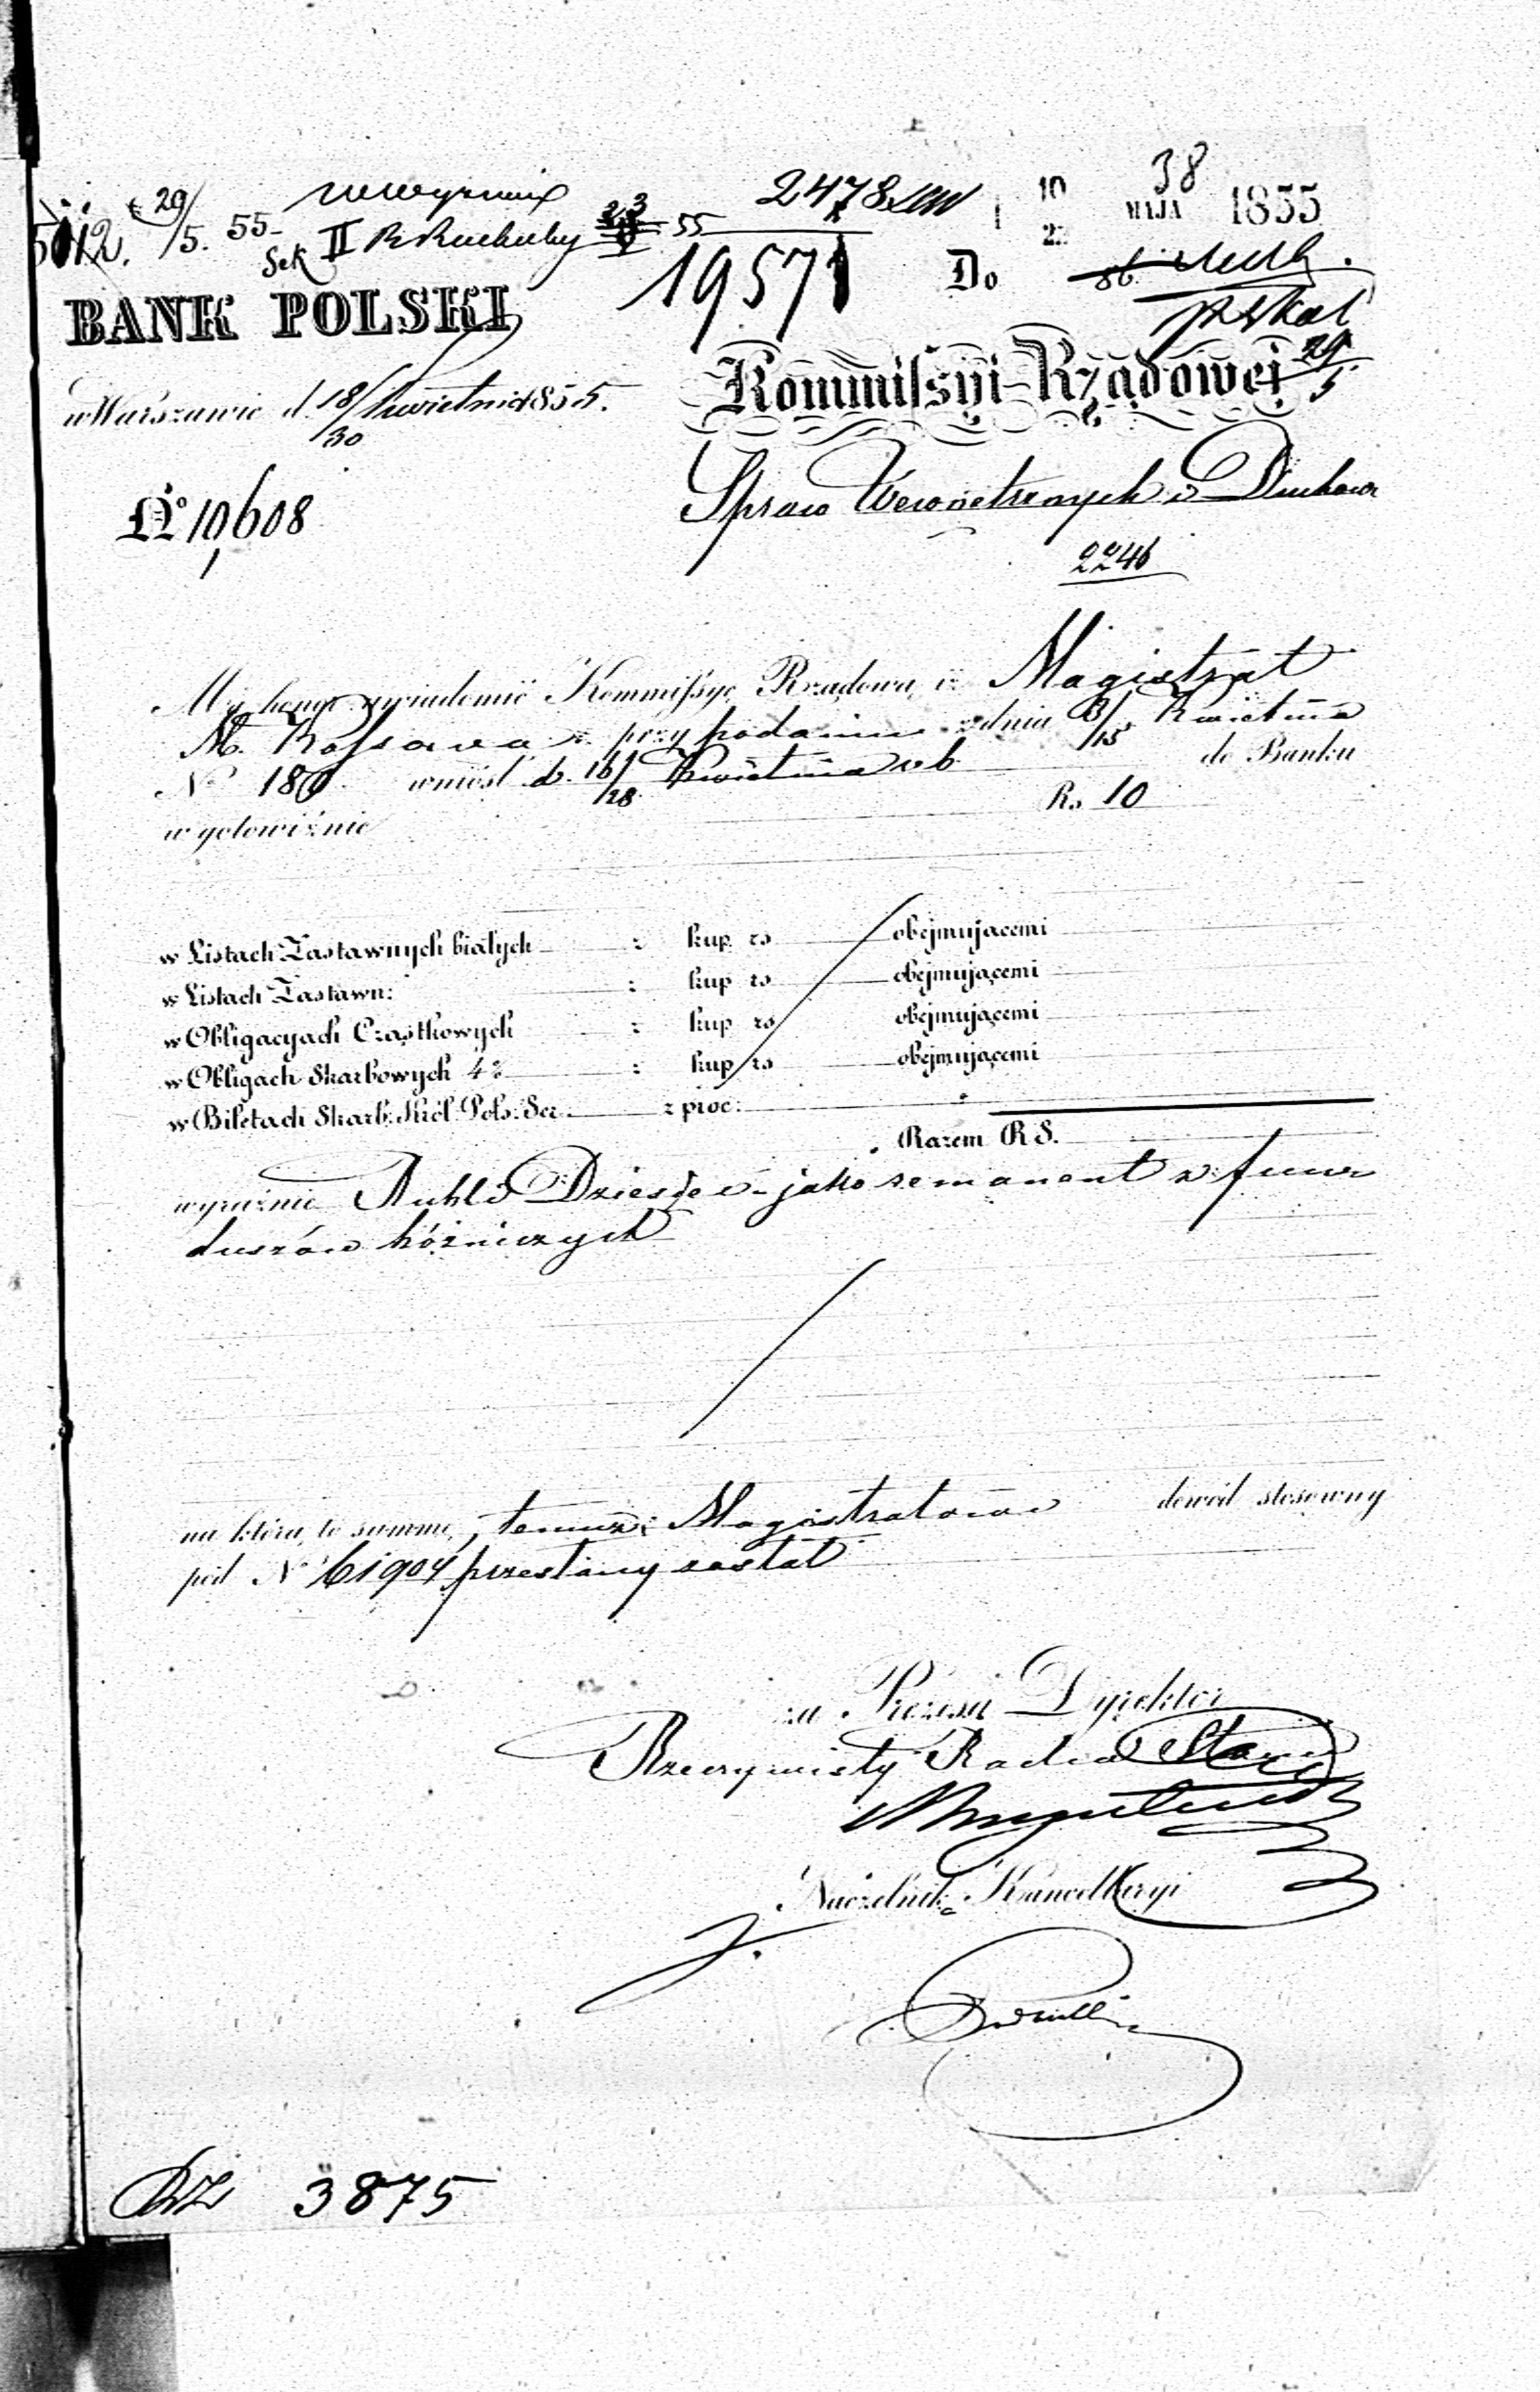 38
2478
10 MAJA 1855
22
5012. 29/5. 55
Sek II 23 55
19571
Do
BANK POLSKI
Kommissyi Rządowej
29/5
w Warszawie d. 18/30 kwietnia 1855.
Spraw Wewnetrznych i Duchown
No 10,608
2246
Ma honor zawiadomić Kommissyę Rządową, iż Magistrat
M. Kossowa przy podaniu z dnia 3/15 Kwietnia
No 180 wniósł d. 16/28 Kwietnia r b do Banku
w gotowiźnie Rs 10
w Listach Zastawnych białych : kup. rs obejmującemi
w Listach Zastawn: : kup rs obejmującemi
w Obligacyach Cząstkowych : kup rs obejmującemi
w Obligach Skarbowych 4% : kup rs obejmującemi
w Biletach Skarb. Król. Pols. Ser. z proc:
Razem RS.
wyraźnie Rubli Dziesięć - jako remanent z fun
duszów bóżniczych
na którą to summę, temuż Magistratowi dowód stosowny
pod No 61904 przesłany został
za Prezesa Dyrektor
Rzeczywisty Radca Stanu
Naczelnik Kancellaryi
3875